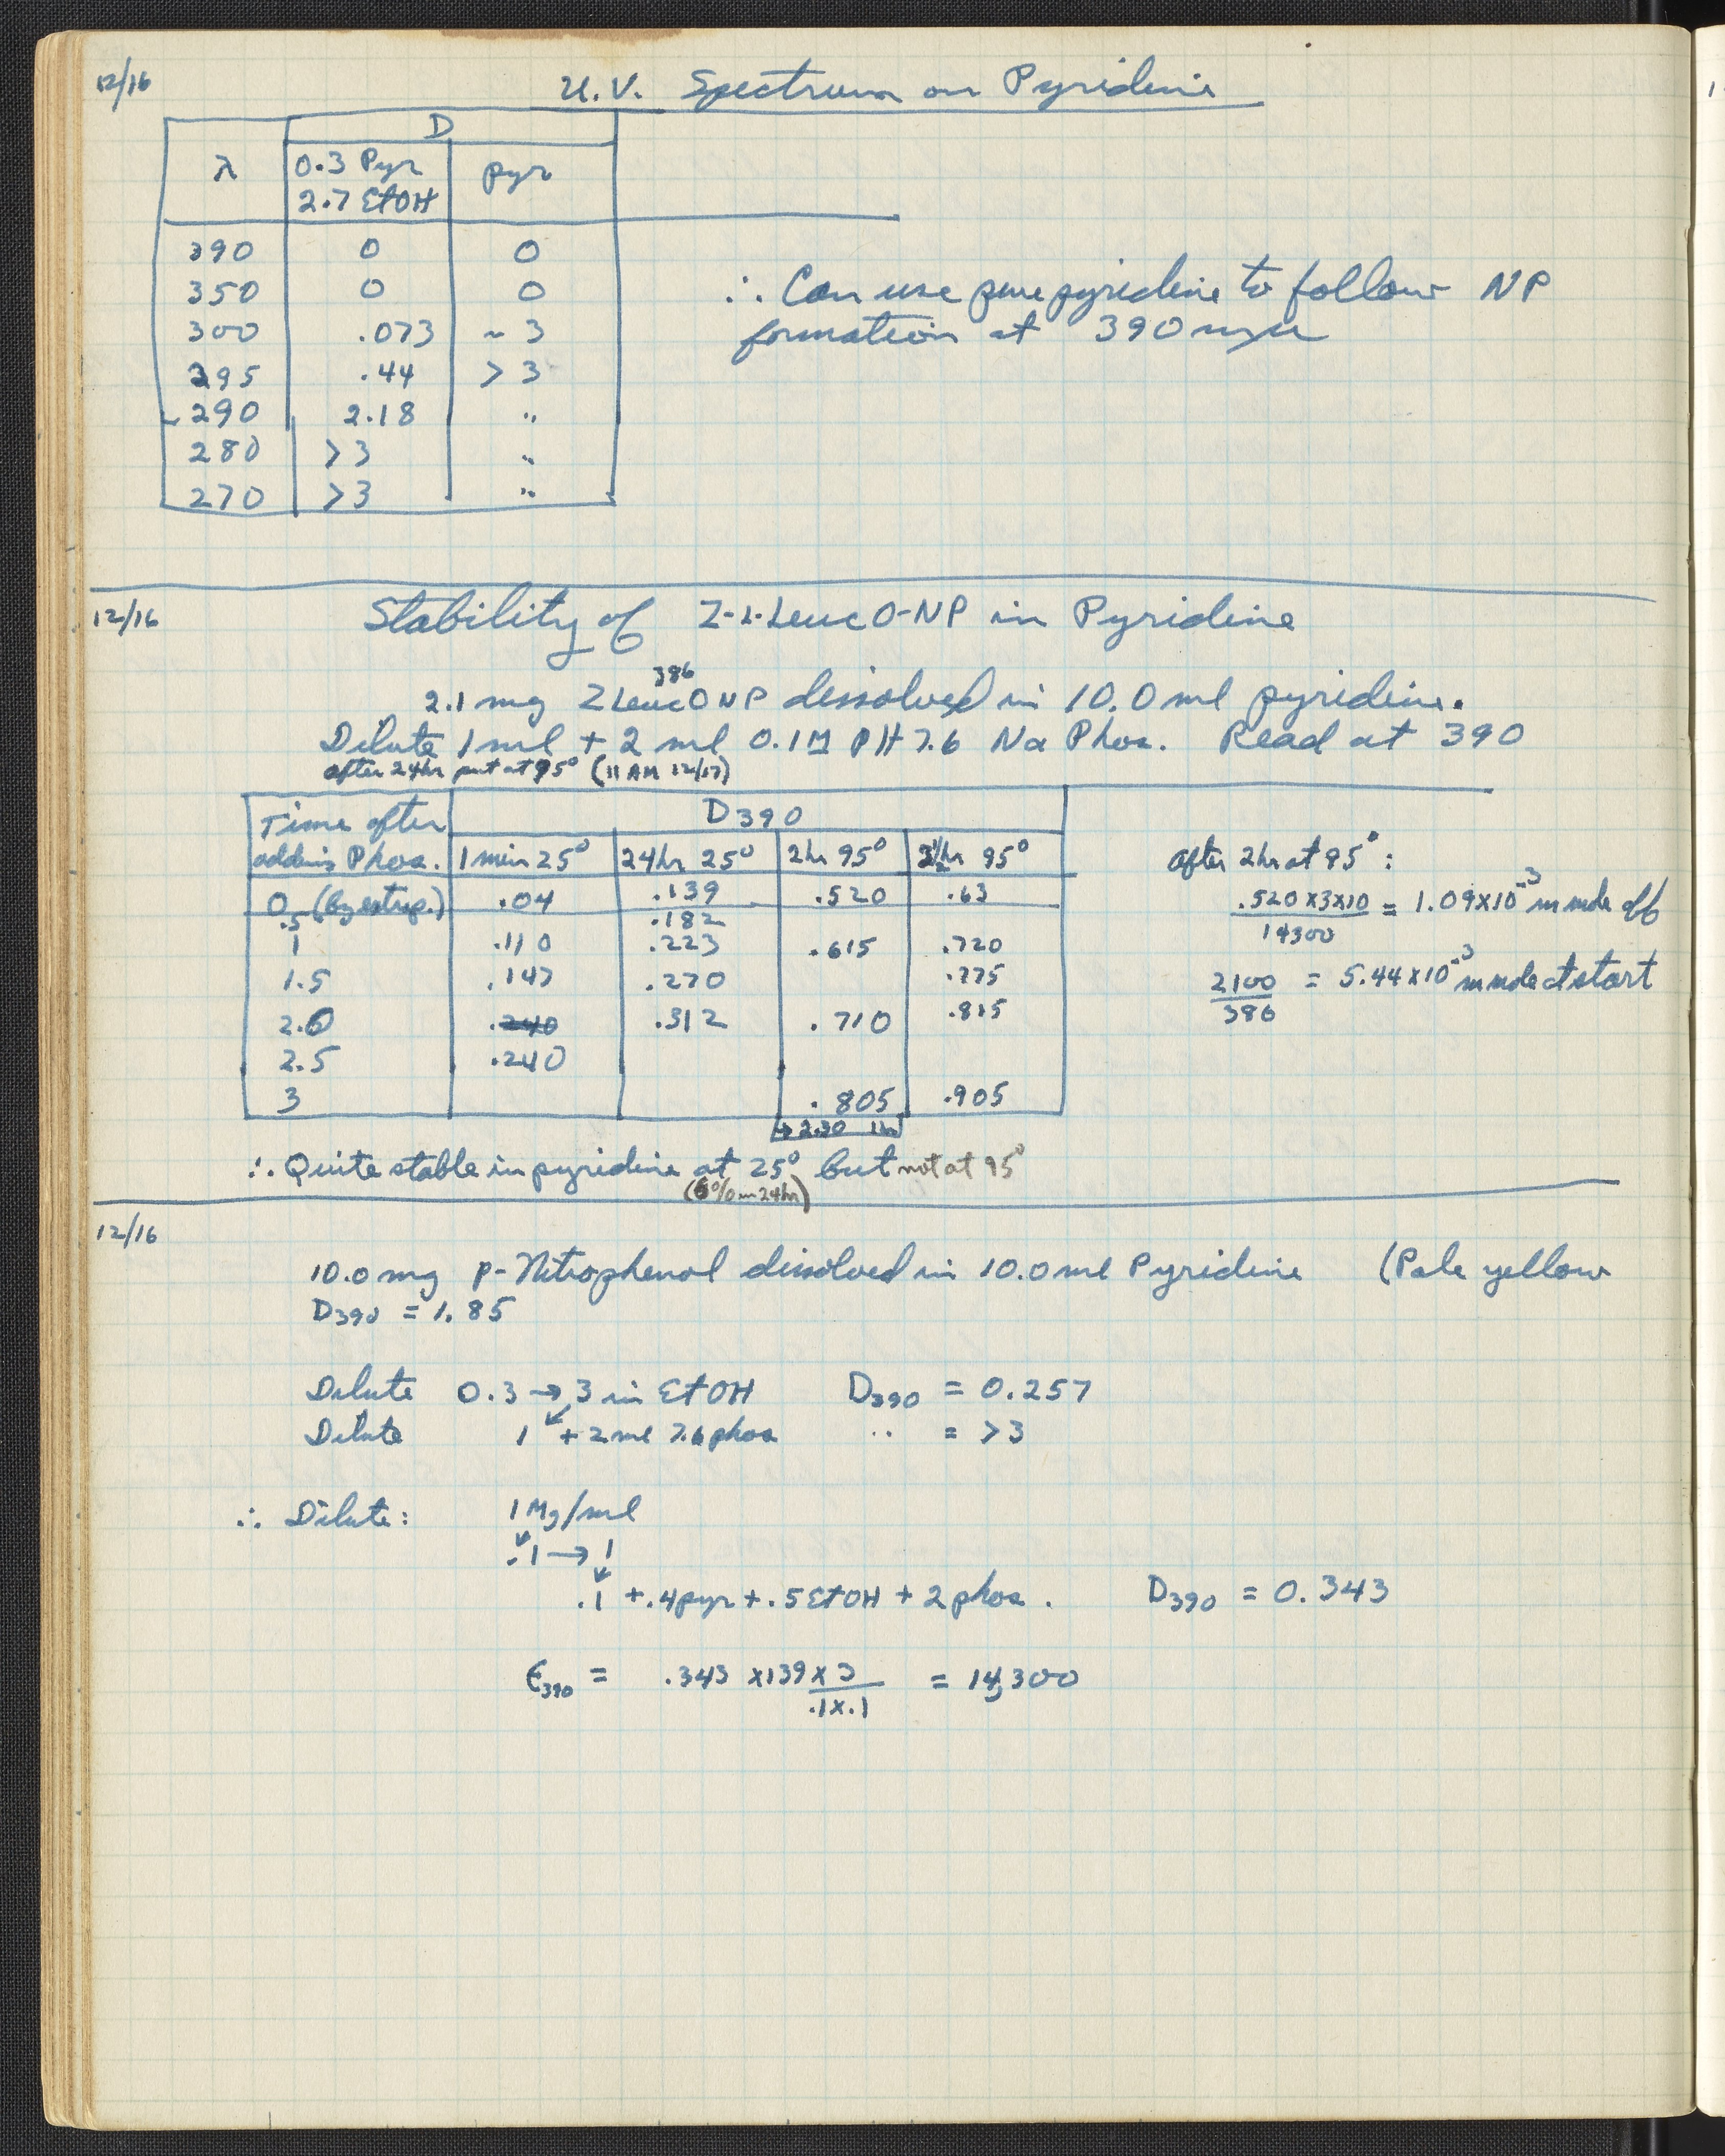 12/16 U.V. Spectrum on Pyridine
D
λ 0.3 Pyr pyr
2.7 EtOH
390 0 0
350 0 0
300 .073 ~ 3
295 .44 > 3
290 2.18 "
280 >3 "
270 >3 "
∴ Can use pure pyridine to follow NP
formation at 390 mµ
12/16 Stability of Z-L-Leuc O-NP in Pyridine
386
2.1 mg Z Leuc O NP dissolved in 10.0 ml pyridine.
Dilute 1 ml + 2 ml 0.1M PH 7.6 Na Phos. Read at 390
after 24hr put at 95° (11 AM 12/17)
Time after D390
adding Phos. 1 min 25° 24hr 25° 2hr 95° 3½hr 95°
0 (by extrap.) .04 .139 .520 .63
.5 .182
1 .110 .223 .615 .720
1.5 .147 .270 .775
2.0 .240 .312 .710 .815
2.5 .240
3 .805 .905
→ 2.30 1hr
after 2hr at 95°:
.520 x3x10 = 1.09x10⁻³ m mole off
14300
2100 = 5.44 x10⁻³ m mole at start
386
∴ Quite stable in pyridine at 25° but not at 95°
(6% in 24hr)
12/16
10.0 mg p-Nitrophenol dissolved in 10.0 ml Pyridine (Pale yellow
D390 = 1.85
Dilute 0.3 → 3 in EtOH D390 = 0.257
Dilute 1 + 2 ml 7.6 phos " = >3
∴ Dilute: 1 Mg/ml
.1 → 1
.1 + .4 pyr + .5 EtOH + 2 phos. D390 = 0.343
Є390 = .343 x139 x 3 = 14,300
.1x.1